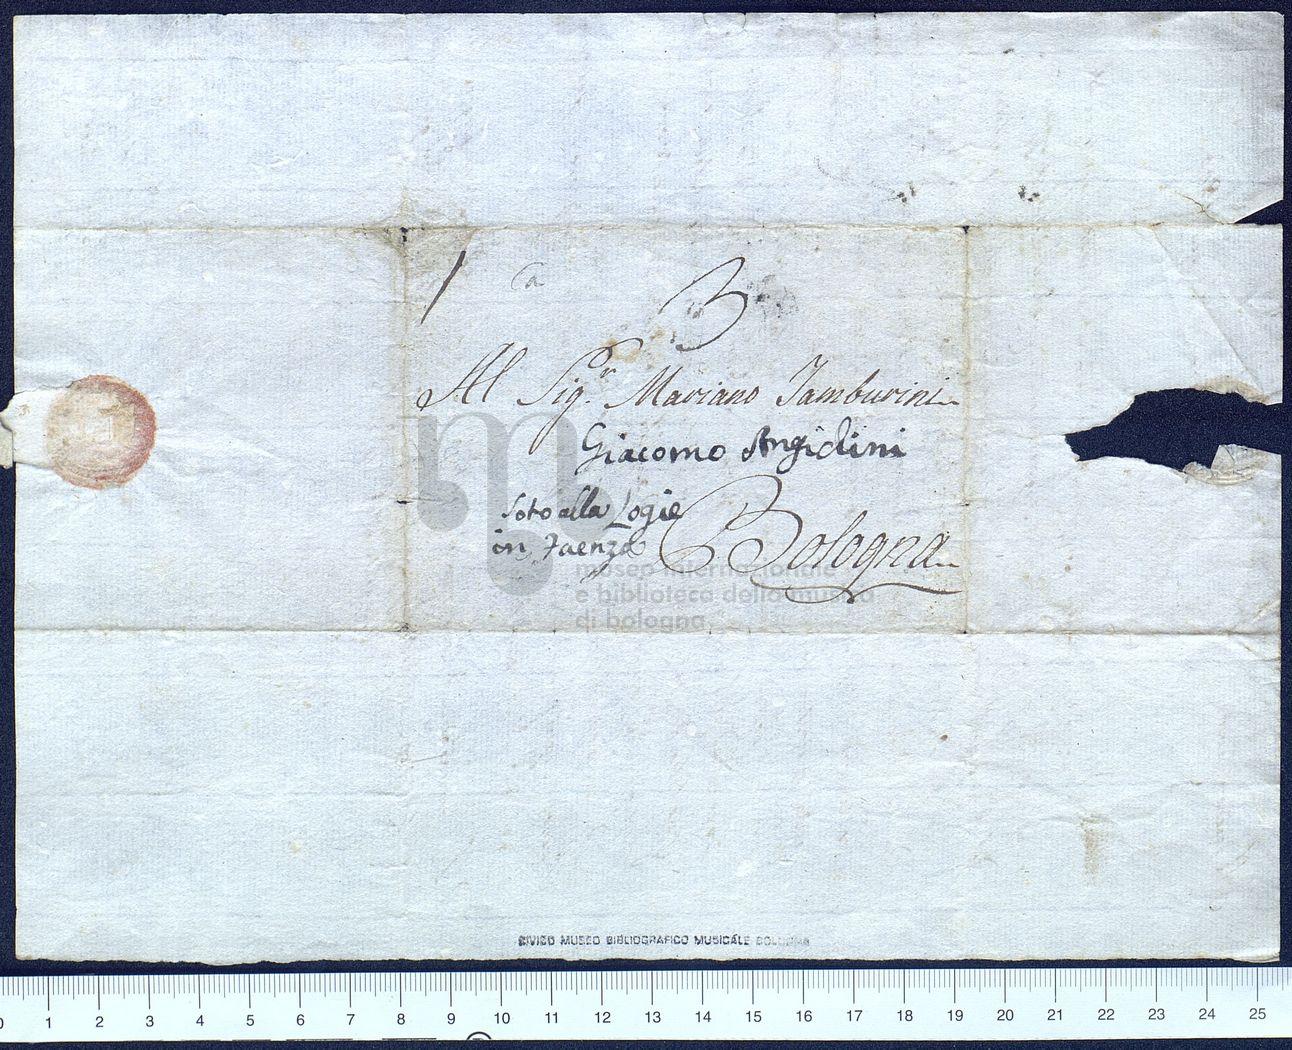 3
Al Sig.r Mariano Tamburini
Giacomo Angidini
soto alla Logie
in Faenza
Bologna
museo internazionale
e biblioteca della musica
di bologna
CIVICO MUSEO BIBLIOGRAFICO MUSICALE BOLOGNA
0 1 2 3 4 5 6 7 8 9 10 11 12 13 14 15 16 17 18 19 20 21 22 23 24 25